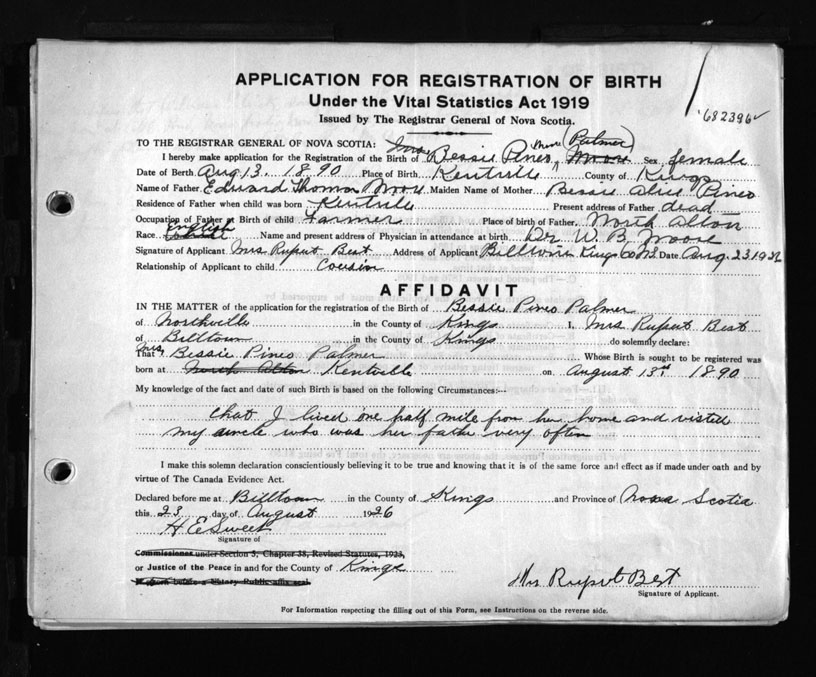 APPLICATION FOR REGISTRATION OF BIRTH
Under the Vital Statistics Act 1919
Issued by The Registrar General of Nova Scotia.
682396
TO THE REGISTRAR GENERAL OF NOVA SCOTIA: Mrs (Palmer)
I hereby make application for the Registration of the Birth of Bessie Pineo Moore Sex female
Date of Birth Aug 13. 1890 Place of Birth Kentville County of Kings
Name of Father Edward Thomas Moore Maiden Name of Mother Bessie Alice Pineo
Residence of Father when child was born Kentville Present address of Father dead
Occupation of Father at Birth of child Farmer Place of Birth of Father North Alton
Race English Name and present address of Physician in attendance at birth Dr W. B. Moore
Signature of Applicant Mrs Rupert Best Address of Applicant Billtown Kings Co N.S. Date Aug. 23 1926
Relationship of Applicant to child Cousin
AFFIDAVIT
IN THE MATTER of the application for the registration of the Birth of Bessie Pineo Palmer
of Northville in the County of Kings I, Mrs Rupert Best
of Billtown in the County of Kings do solemnly declare:
That Mrs Bessie Pineo Palmer Whose Birth is sought to be registered was
born at North Alton Kentville on August 13th 1890
My knowledge of the fact and date of such Birth is based on the following Circumstances:--
that I lived one half mile from her home and visited
my uncle who was her father very often
I make this solemn declaration conscientiously believing it to be true and knowing that it is of the same force and effect as if made under oath and by
virtue of The Canada Evidence Act.
Declared before me at Billtown in the County of Kings and Province of Nova Scotia
this 23 day of August 1926
H E Sweet
Signature of
Commissioner under Section 3, Chapter 38, Revised Statutes, 1923,
or Justice of the Peace in and for the County of Kings
Mrs. Rupert Best
Signature of Applicant.
For Information respecting the filling out of this Form, see Instructions on the reverse side.